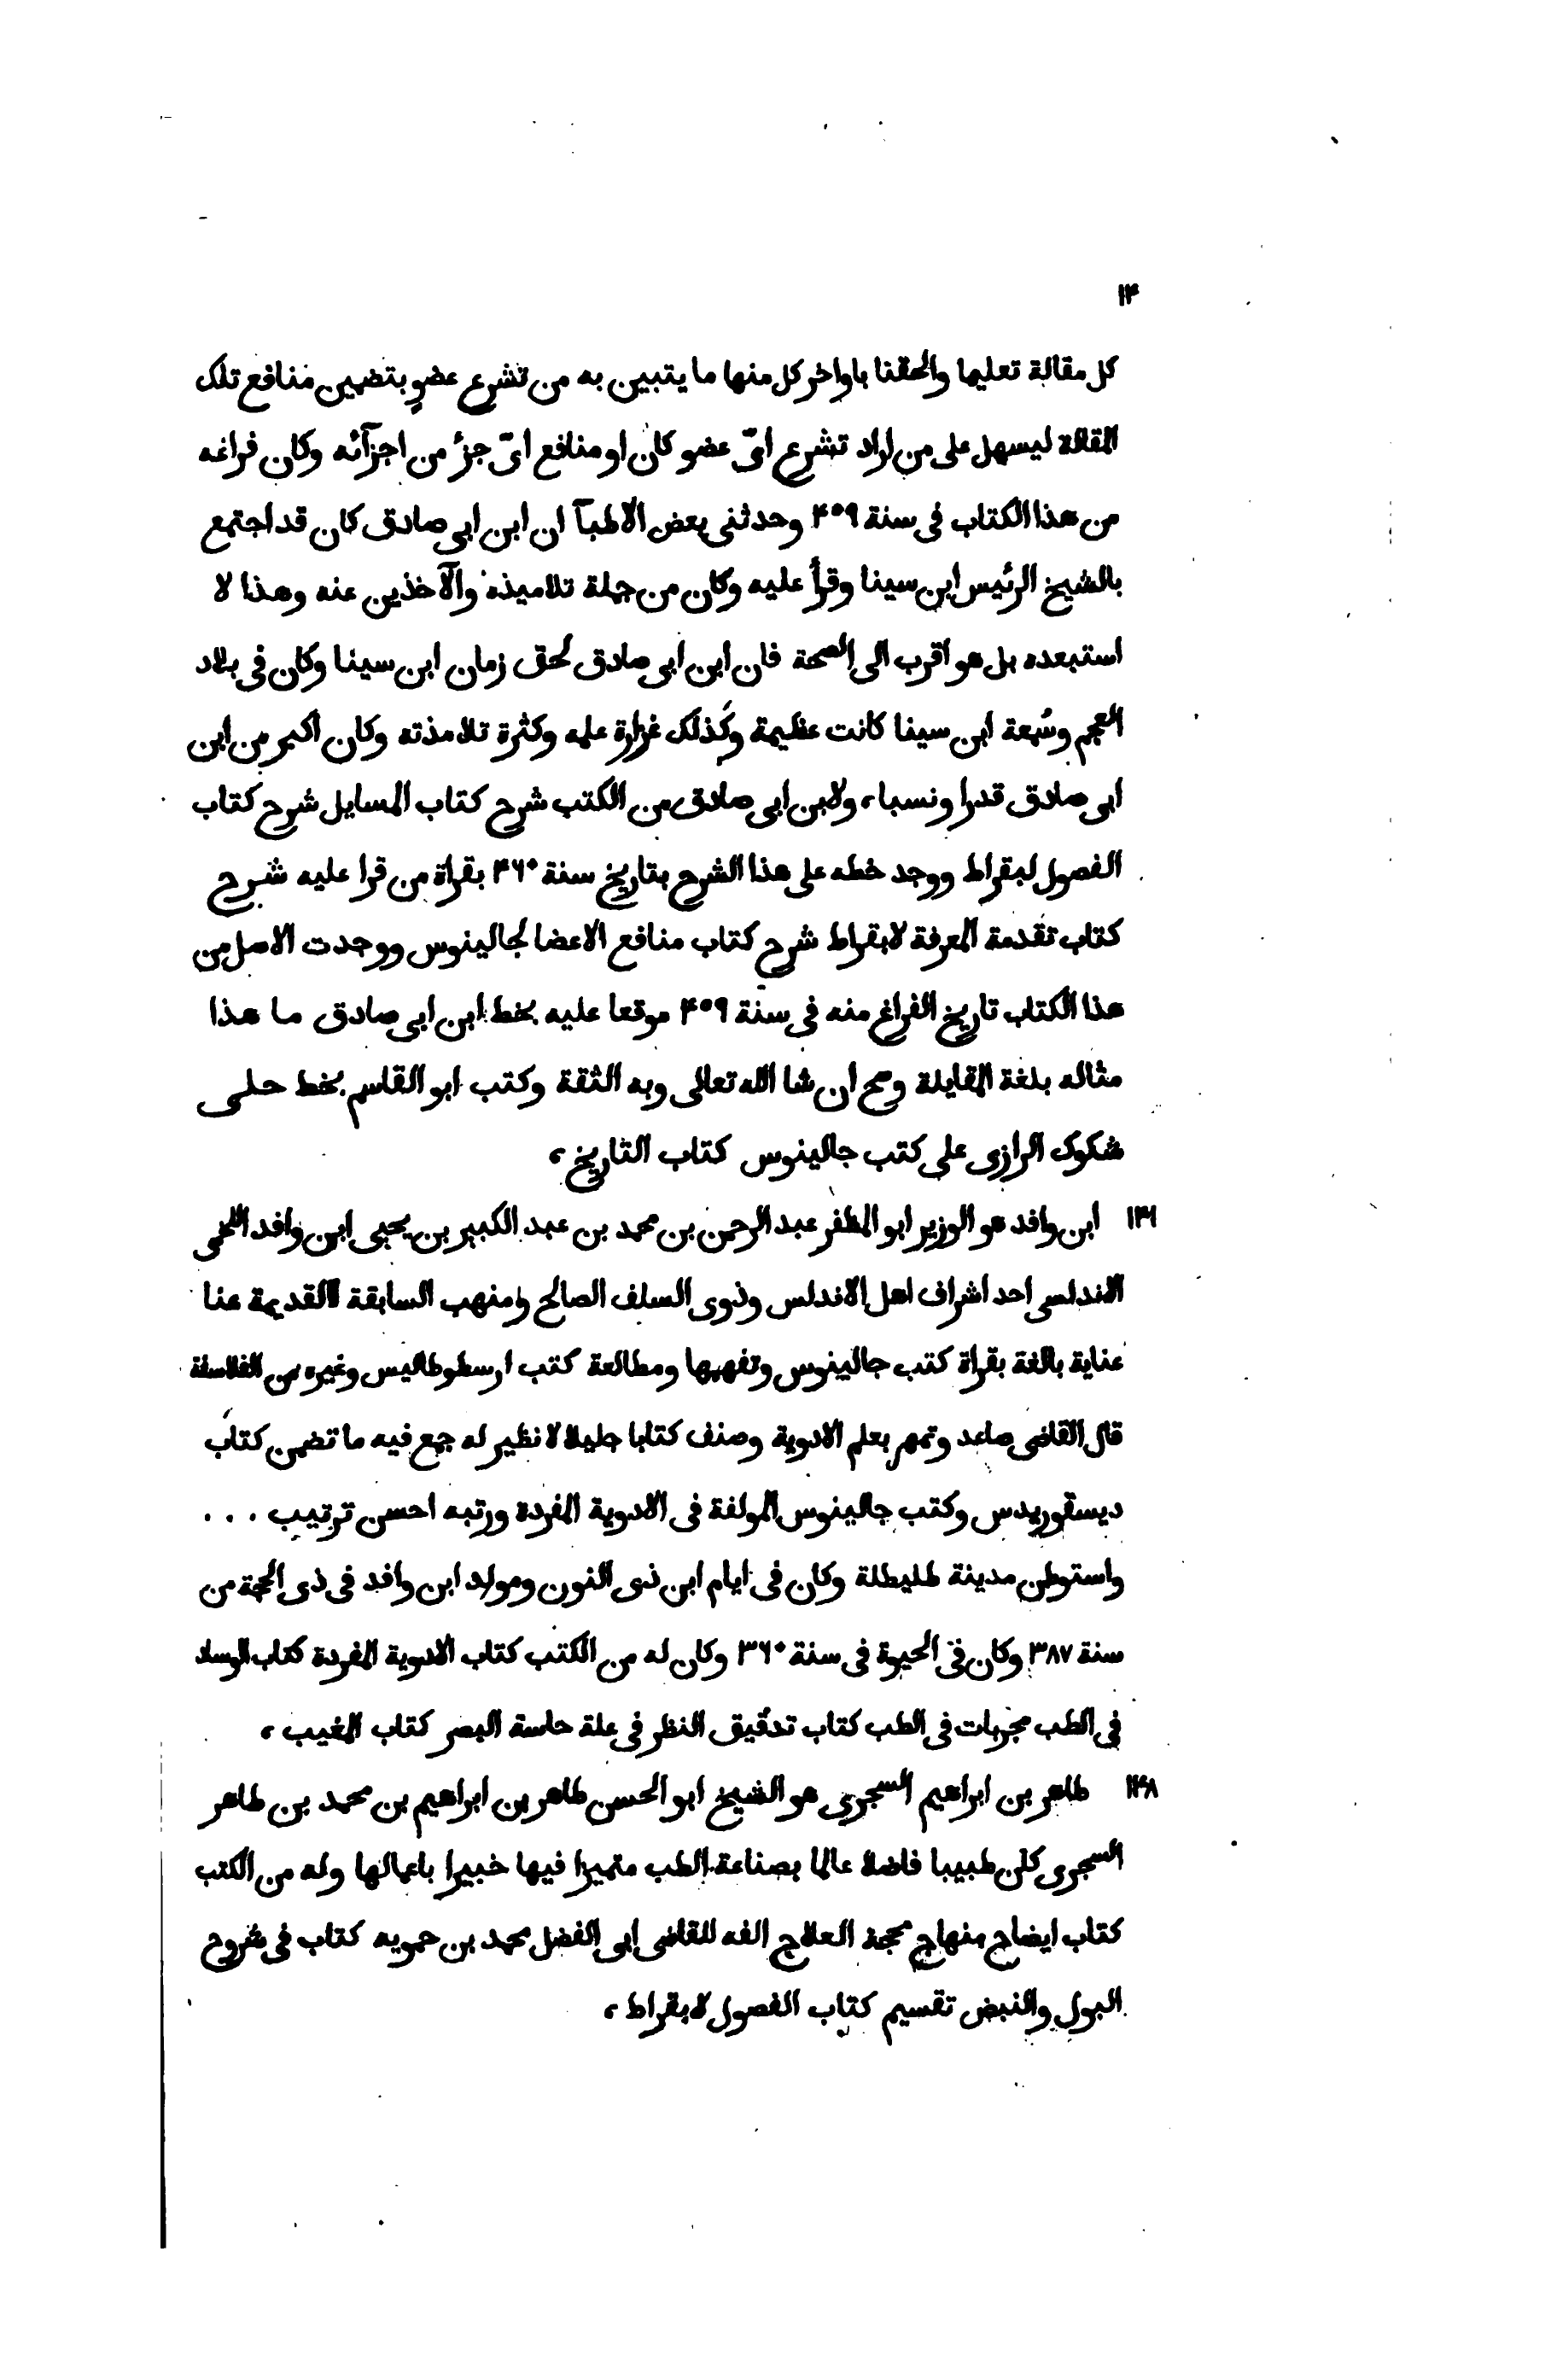 ١٣
كل مقالة تعليما والحقنا باواخر كل منها ما يتبين به من تشرع عضو بتضمين منافع تلك
المقالة ليسهل على من اراد تشرع اىّ عضو كان او منافع اىّ جزٔ من اجزآئه وكان فراغه
من هذا الكتاب فى سنة ۴۵۹ وحدثنى بعض الاطبآ ان ابن ابى صادق كان قد اجتمع
بالشيخ الرئيس ابن سينا وقرأ عليه وكان من جملة تلاميذه والآخذين عنه وهذا لا
استبعده بل هو اقرب الى الصحة فان ابن ابى صادق لحق زمان ابن سينا وكان فى بلاد
العجم وسُمعة ابن سينا كانت عظيمة وكَذلك غزارة علمه وكثرة تلامذته وكان اكبر من ابن
ابى صادق قدرا ونسبا، ولابن ابى صادق من الكتب شرح كتاب المسايل شرح كتاب
الفصول لبقراط ووجد خطه على هذا الشرح بتاريخ سنة ۴۶۰ بقراة من قرا عليه شرح
كتاب تقدمة المعرفة لابقراط شرح كتاب منافع الاعضا لجالينوس ووجدت الاصل من
هذا الكتاب تاريخ الفراغ منه فى سنة ۴۵۹ موقعا عليه بخط ابن ابى صادق ما هذا
مثاله بلغة المقابلة وصح ان شا الله تعالى وبه الثقة وكتب ابو القاسم بخط حلى
شكوك الرازى على كتب جالينوس كتاب التاريخ،
ابن وافد هو الوزير ابو المظفر عبد الرحمن بن محمد بن عبد الكبير بن يحيى ابن وافد اللخمى
الاندلسى احد اشراف اهل الاندلس وذوى السلف الصالح ومنهب السابقة القديمة عنا
عناية بالغة بقراة كتب جالينوس وتفهمها ومطالعة كتب ارسطوطاليس وغيره من الفلاسفة
قال القاضى صاعد وتمهر بعلم الادوية وصنف كتابا جليلا لا نظير له جمع فيه ما تضمن كتاب
ديسقوريدس وكتب جالينوس المولفة فى الادوية المفردة ورتبه احسن ترتيب . . .
واستوطن مدينة طليطلة وكان فى ايام ابن ذى النون ومولد ابن وافد فى ذى الحجة من
سنة ٣٨٧ وكان فى الحيوة فى سنة ٣٦٠ وكان له من الكتب كتاب الادوية المفردة كتاب الوساد
فى الطب مجربات فى الطب كتاب تدقيق النظر فى علة حاسة البصر كتاب المغيب،
طاهر بن ابراهيم السجرى هو الشيخ ابو الحسن طاهر بن ابراهيم بن محمد بن طاهر
السجرى كان طبيبا فاضلا عالما بصناعة الطب متميزا فيها خبيرا باعمالها وله من الكتب
كتاب ايضاح منهاج محجة العلاج الفه للقاضى ابى الفضل محمد بن حمويه كتاب فى شروح
البول والنبض تقسيم كتاب الفصول لابقراط،